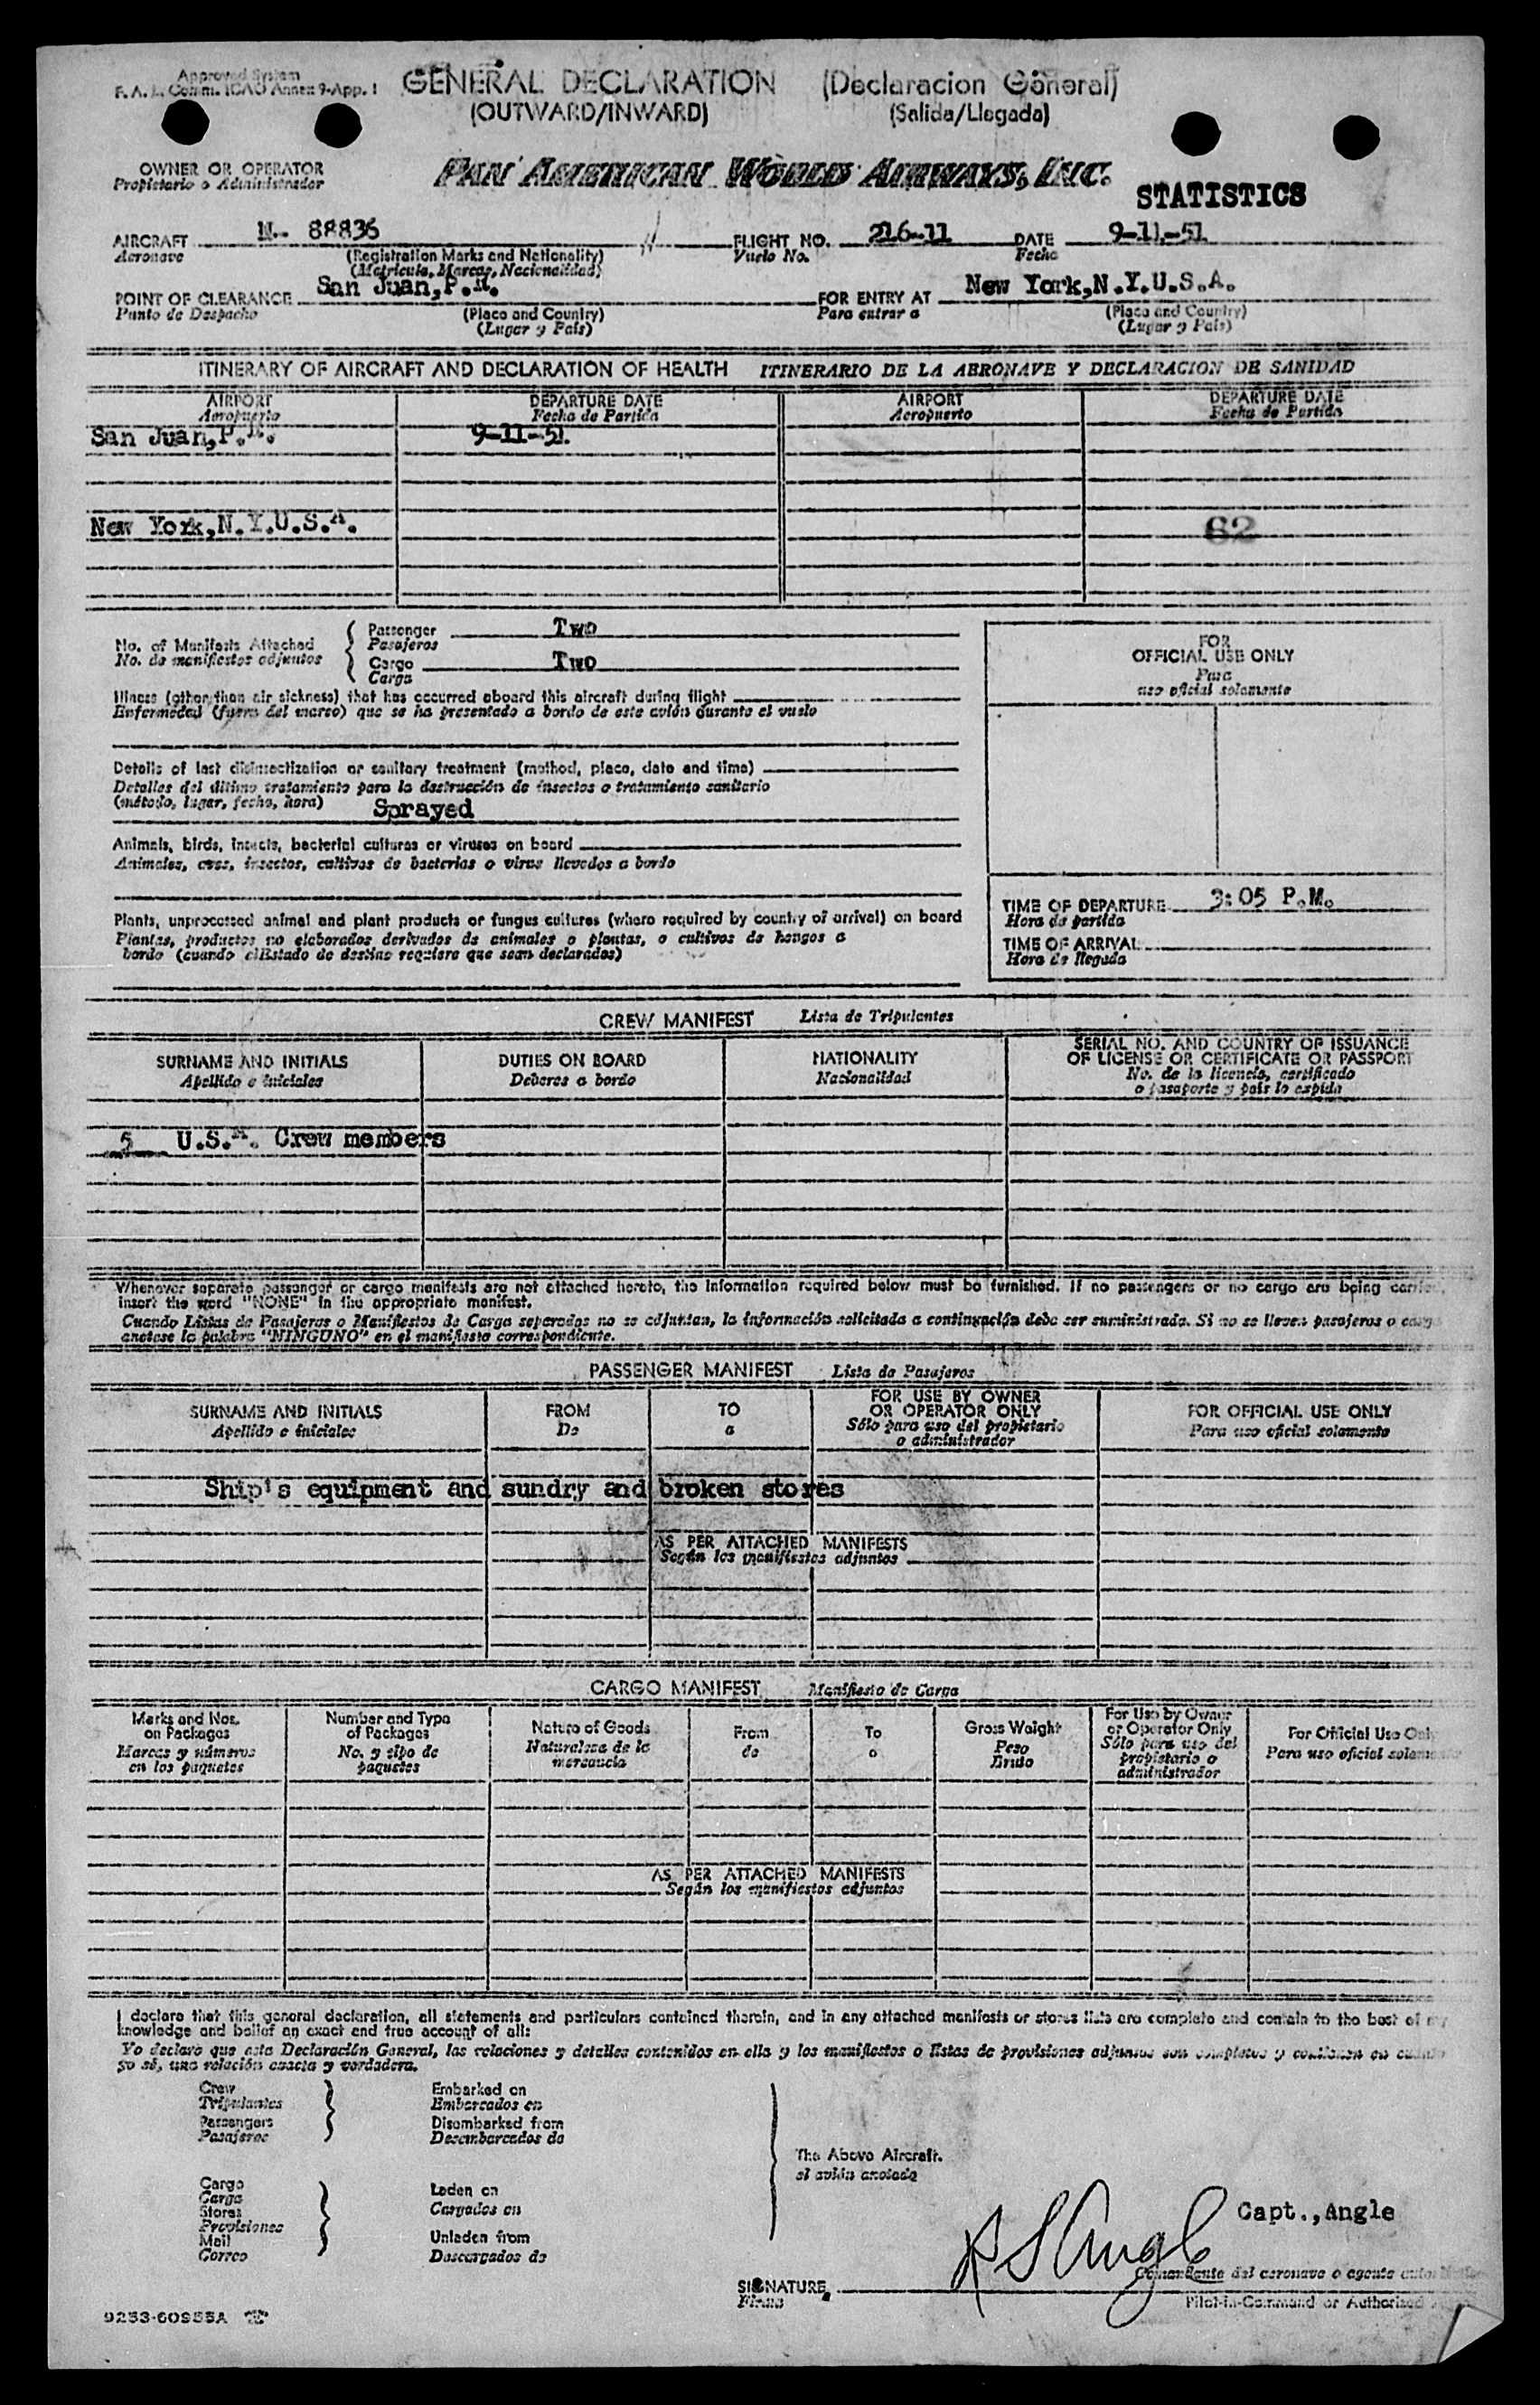 Approved System
F. A. L. Comm. ICAO Annex 9-App. 1
GENERAL DECLARATION (Declaracion General)
(OUTWARD/INWARD) (Salida/Llegada)
OWNER OR OPERATOR
Propietario o Administrador
PAN AMERICAN WORLD AIRWAYS, INC.
STATISTICS
AIRCRAFT N- 88836 FLIGHT NO. 216-11 DATE 9-11-51
Aeronave (Registration Marks and Nationality) Vuelo No. Fecha
(Matricula, Marcas, Nacionalidad)
POINT OF CLEARANCE San Juan,P.R. FOR ENTRY AT New York,N.Y.U.S.A.
Punto de Despacho (Place and Country) Para entrar a (Place and Country)
(Lugar y País) (Lugar y País)
ITINERARY OF AIRCRAFT AND DECLARATION OF HEALTH ITINERARIO DE LA AERONAVE Y DECLARACION DE SANIDAD
AIRPORT DEPARTURE DATE AIRPORT DEPARTURE DATE
Aeropuerto Fecha de Partida Aeropuerto Fecha de Partida
San Juan,P.R. 9-11-51
New York,N.Y.U.S.A. 62
No. of Manifests Attached Passenger Two
No. de manifiestos adjuntos Pasajeros
Cargo Two
Carga
FOR
OFFICIAL USE ONLY
Para
uso oficial solamente
Illness (other than air sickness) that has occurred aboard this aircraft during flight
Enfermedad (fuera del mareo) que se ha presentado a bordo de este avión durante el vuelo
Details of last disinsectization or sanitary treatment (method, place, date and time)
Detalles del último tratamiento para la destrucción de insectos o tratamiento sanitario
(método, lugar, fecha, hora) Sprayed
Animals, birds, insects, bacterial cultures or viruses on board
Animales, aves, insectos, cultivos de bacterias o virus llevados a bordo
Plants, unprocessed animal and plant products or fungus cultures (where required by country of arrival) on board
Plantas, productos no elaborados derivados de animales o plantas, o cultivos de hongos a
bordo (cuando el Estado de destino requiere que sean declarados)
TIME OF DEPARTURE 3:05 P.M.
Hora de partida
TIME OF ARRIVAL
Hora de llegada
CREW MANIFEST Lista de Tripulantes
SURNAME AND INITIALS DUTIES ON BOARD NATIONALITY SERIAL NO. AND COUNTRY OF ISSUANCE
OF LICENSE OR CERTIFICATE OR PASSPORT
Apellido e iniciales Deberes a bordo Nacionalidad No. de la licencia, certificado
o pasaporte y país lo expida
5 U.S.A. Crew members
Whenever separate passenger or cargo manifests are not attached hereto, the information required below must be furnished. If no passengers or no cargo are being carried,
insert the word "NONE" in the appropriate manifest.
Cuando Listas de Pasajeros o Manifiestos de Carga separados no se adjuntan, la información solicitada a continuación debe ser suministrada. Si no se lleven pasajeros o carga
anotese la palabra "NINGUNO" en el manifiesto correspondiente.
PASSENGER MANIFEST Lista de Pasajeros
SURNAME AND INITIALS FROM TO FOR USE BY OWNER FOR OFFICIAL USE ONLY
OR OPERATOR ONLY
Apellido e iniciales De a Sólo para uso del propietario Para uso oficial solamente
o administrador
Ship's equipment and sundry and broken stores
AS PER ATTACHED MANIFESTS
Según los manifiestos adjuntos
CARGO MANIFEST Manifiesto de Carga
Marks and Nos. on Packages
Marcas y números en los paquetes
Number and Type of Packages
No. y tipo de paquetes
Nature of Goods
Naturaleza de la mercancía
From
de
To
a
Gross Weight
Peso Bruto
For Use by Owner or Operator Only
Sólo para uso del propietario o administrador
For Official Use Only
Para uso oficial solamente
AS PER ATTACHED MANIFESTS
Según los manifiestos adjuntos
I declare that this general declaration, all statements and particulars contained therein, and in any attached manifests or stores lists are complete and contain to the best of my
knowledge and belief an exact and true account of all:
Yo declaro que esta Declaración General, las relaciones y detalles contenidos en ella y los manifiestos o listas de provisiones adjuntas son completos y contienen en cuanto
yo sé, una relación exacta y verdadera.
Crew Embarked on
Tripulantes Embarcados en
Passengers Disembarked from
Pasajeros Desembarcados de
The Above Aircraft.
el avión anotado
Cargo Laden on
Carga Cargados en
Stores
Provisiones
Mail Unladen from
Correo Descargados de
Capt.,Angle
R S Angle
SIGNATURE Comandante del aeronave o agente
Firma Pilot-in-Command or Authorized
9253-60955A